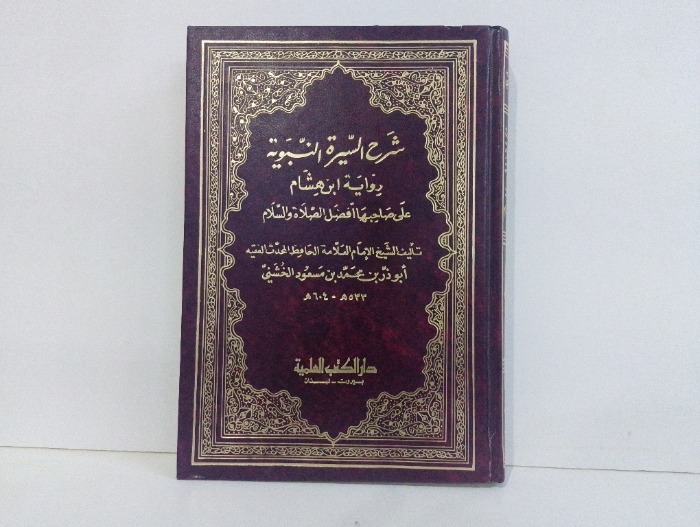 شرح السيرة النبوية
رواية ابن هشام
على صاحبها أفضل الصلاة والسلام
تأليف الشيخ الإمام العلامة الحافظ المحدث الفقيه
أبو ذر بن محمد بن مسعود الخشني
٥٣٣هـ - ٦٠٤هـ
دار الكتب العلمية
بيروت - لبنان